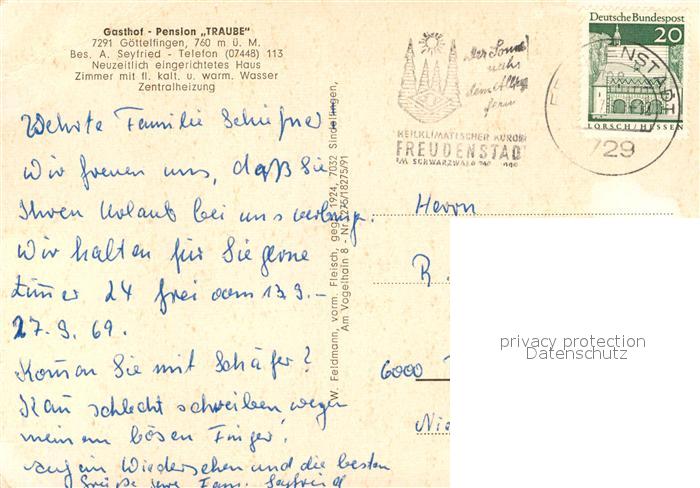 Gasthof - Pension „TRAUBE"
7291 Göttelfingen, 760 m ü. M.
Bes. A. Seyfried - Telefon (07448) 113
Neuzeitlich eingerichtetes Haus
Zimmer mit fl. kalt. u. warm. Wasser
Zentralheizung
Wehrte Familie
Wir freuen uns, daß Sie
Ihren Urlaub bei uns verbringen.
Wir halten für Sie gerne
Zimmer 24 frei vom 13.9.–
27.9.69.
Kommen Sie mit Schäfer?
Kann schlecht schreiben wegen
meinem bösen Finger!
auf ein Wiedersehen und die besten
Grüße Fam. Seyfried
W. Feldmann, vorm. Fleisch, gegr. 1924, 7032 Sindelfingen,
Am Vogelhain 8 - Nr. 5276/18275/91
der Sonne
nah
dem Alltag
fern
HEILKLIMATISCHER KURORT
FREUDENSTADT
IM SCHWARZWALD
FREUDENSTADT
729
Deutsche Bundespost
20
LORSCH/HESSEN
Herrn
R.
6000
privacy protection
Datenschutz